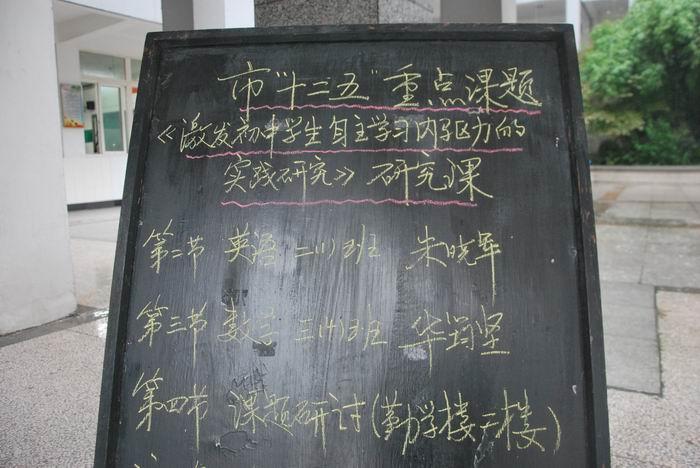 市“十二五”重点课题
《激发初中学生自主学习内驱力的
实践研究》研究课
第二节 英语 二(1)班 朱晓华
第三节 数学 三(4)班 华筠坚
第四节 课题研讨(勤学楼二楼)